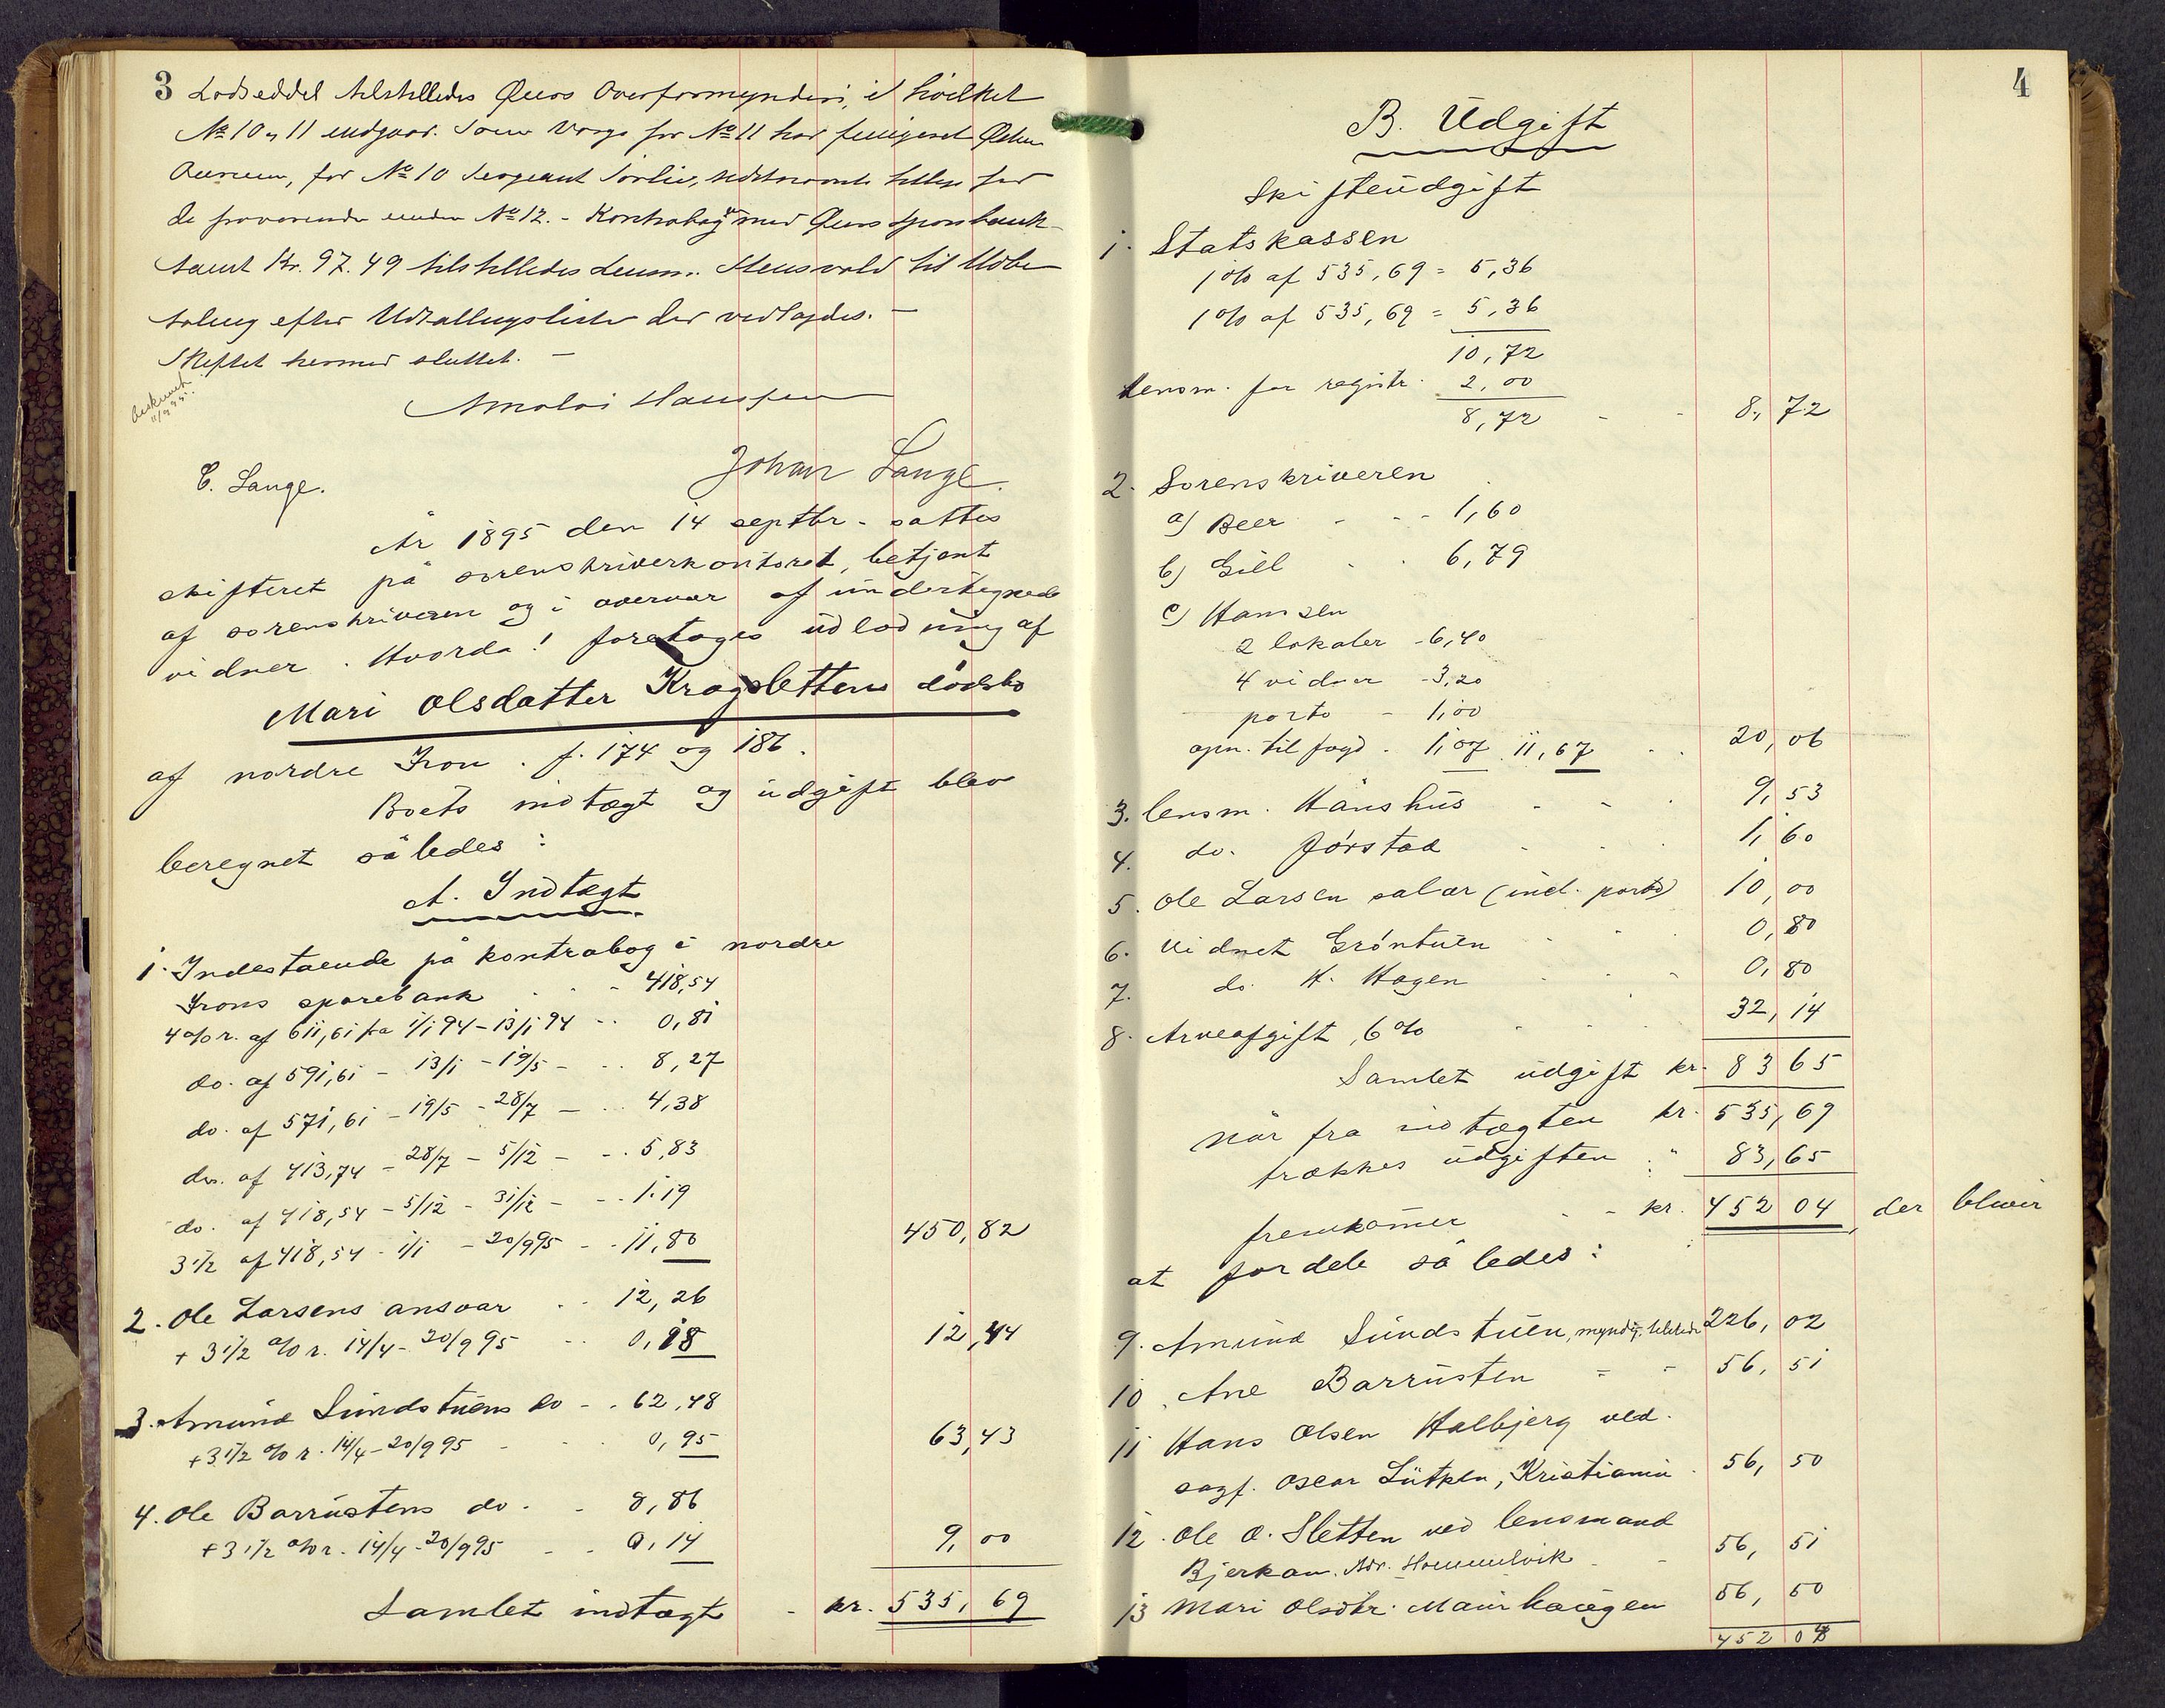 3
Lodseddel tilstilledes Øiers Overformynderi, i hvilket
No 10 og 11 indgaar. Som Verge for No 11 har fungeret
for No 10 Sergeant Sörlie, sidstnævnte tillige for
de fraværende under No 12. - Kontrabog med Øiers Sparebank
samt Kr. 97.49 tilstilledes Lensm. Stensvold til Udbe
taling efter Udtallingsliste der vedlagdes. -
Skiftet hermed sluttet. -
Amaloi Hanssen
Johan Lange.
C. Lange.
År 1895 den 14 septbr. sattes
skifteret på sorenskriverkontoret, betjent
af sorenskriveren og i overvær af undertegnede
vidner. Hvorda! foretoges udlodning af
Mari Olsdatter Kragslettens dödsbo
af nordre Fron. f. 174 og 186.
Boets indtægt og udgift blev
beregnet således:
A. Indtægt
1. Indestaende på kontrabog i nordre
Frons sparebank - 418,54
4 % r. af 611,61 fra 1/1 94 - 13/1 94 - 0,81
do. af 591,61 - 13/1 - 19/5 - 8,27
do. af 571,61 - 19/5 - 28/7 - 4,38
do. af 413,74 - 28/7 - 5/12 - 5,83
do. af 418,54 - 5/12 - 31/12 - 1.19
3 1/2 af 418,54 - 1/1 - 20/9 95 - 11,80 450,82
2. Ole Larsens ansvar 12,26
+ 3 1/2 % r. 14/4 - 20/9 95 0,18 12,44
3. Amund Sundstuens do - 62,48
+ 3 1/2 % r. 14/4 - 20/9 95 - 0,95 63,43
4. Ole Barrustens do. - 8,86
+ 3 1/2 % r. 14/4 - 20/9 95 - 0,14 9,00
Samlet indtægt - kr. 535,69
4
B. Udgift
Skifteudgift
1. Statskassen
1 % af 535,69 = 5,36
1 % af 535,69 = 5,36
10,72
Lensm. for registr. 2,00
8,72 - - 8,72
2. Sorenskriveren
a) Beer - - - 1,60
b) Gill - - 6,79
c) Hamsen
2 lokaler - 6,40
4 vidner - 3,20
porto - 1,00
opn. til fogd. 1,07 11,67 20,06
3. lensm. Hånshus - - 9,53
4. do. Jörstad 1,60
5. Ole Larsen salær (incl. porto) 10,00
6. Vidnet Gröntuen 0,80
7. do. H. Hagen 0,80
8. Arveafgift, 6 % 32,14
Samlet udgift kr. 83 65
når fra indtægten kr. 535,69
trækkes udgiften " 83,65
fremkomer - kr. 452 04, der bliver
at fordele således:
9. Amund Sundstuen, myndig, tilstede 226,02
10. Ane Barrusten " - 56,51
11 Hans Olsen Halbjerg ved.
sagf. Oscar Lütken, Kristiania. 56,50
12. Ole O. Sletten ved lensmand
Bjerkan. Adr. Hommelvik - - 56,51
13 Mari Olsdtr. Maurhaugen 56,50
452 04